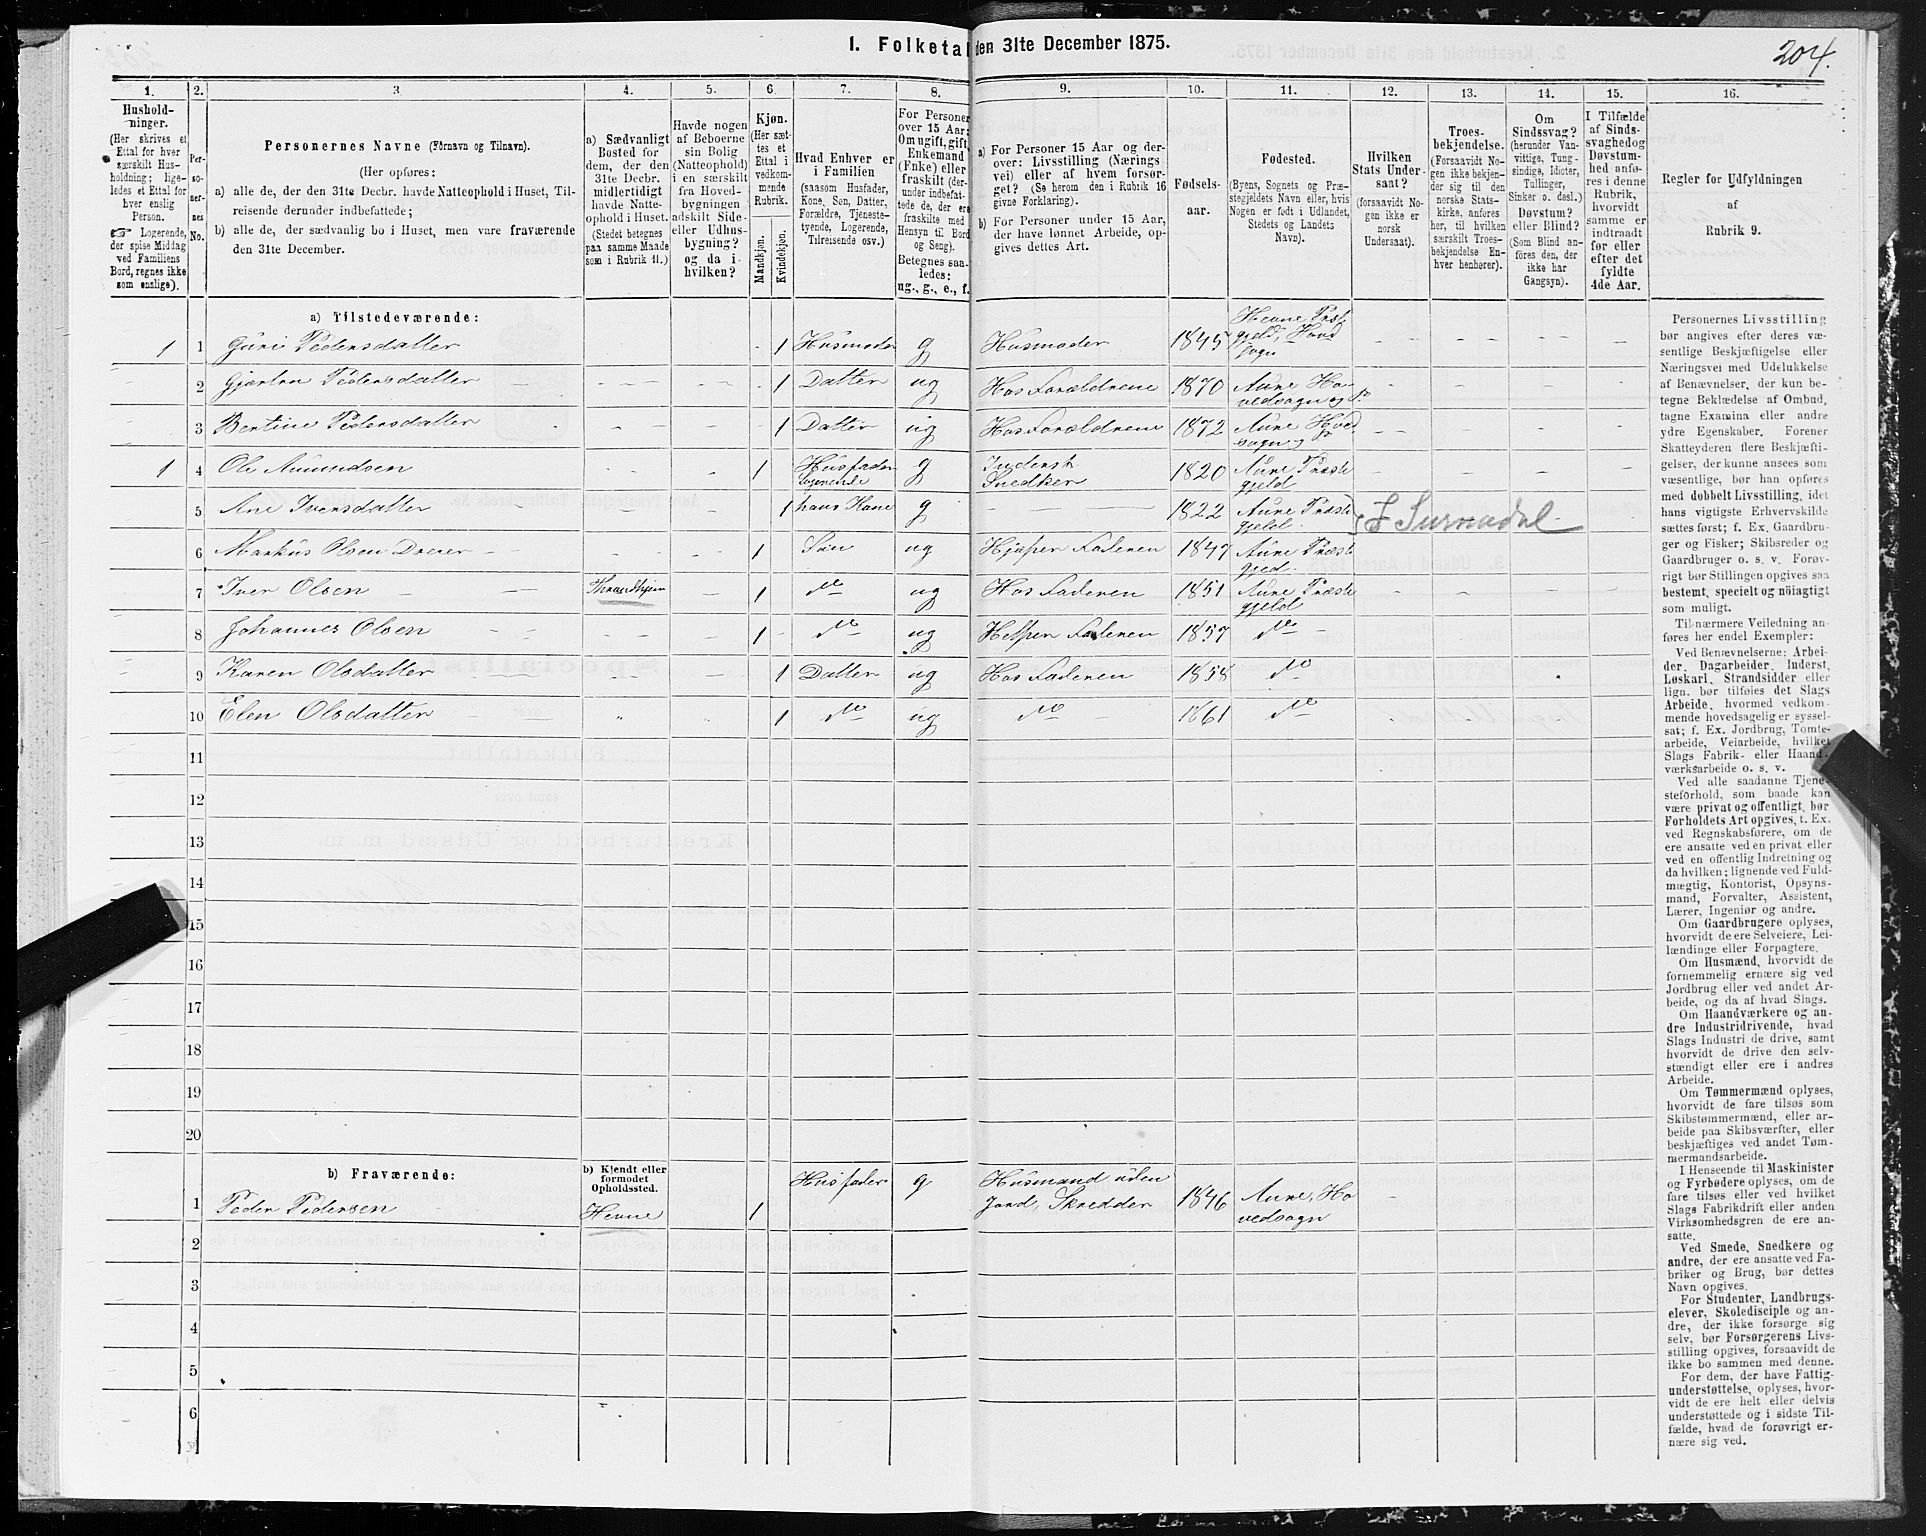 1. Folketal den 31te December 1875.
204.
1.
2.
3
4.
5.
6
7.
8.
9.
10.
11.
12.
13.
14.
15.
16.
Hushold-
ninger.
(Her skrives et
Ettal for hver
særskilt Hus-
holdning; lige-
ledes et Ettal for
hver enslig
Person.
☞ Logerende,
der spise Middag
ved Familiens
Bord, regnes ikke
som enslige).
Per-
so-
ner-
nes
No.
Personernes Navne (Fornavn og Tilnavn).
(Her opføres:
a) alle de, der den 31te Decbr. havde Natteophold i Huset, Til-
reisende derunder indbefattede;
b) alle de, der sædvanlig bo i Huset, men vare fraværende
den 31te December.
a) Sædvanligt
Bosted for
dem, der den
31te Decbr.
midlertidigt
havde Natte-
ophold i Huset.
(Stedet betegnes
paa samme Maade
som i Rubrik 11.)
Havde nogen
af Beboerne
sin Bolig
(Natteophold)
i en særskilt
fra Hoved-
bygningen
adskilt Side-
eller Udhus-
bygning?
og da i
hvilken?
Kjøn.
(Her sæt-
tes et
Ettal i
vedkom-
mende
Rubrik.
Mandkjøn.
Kvindekjøn.
Hvad Enhver er
i Familien
(saasom Husfader,
Kone, Søn, Datter,
Forældre, Tjeneste-
tyende, Logerende,
Tilreisende osv.)
For Personer
over 15 Aar:
Om ugift, gift,
Enkemand
(Enke) eller
fraskilt (der-
under indbefat-
tede de, der ere
fraskilte med
Hensyn til Bord
og Seng).
Betegnes saa-
ledes:
ug., g., e., f.
a) For Personer 15 Aar og der-
over: Livsstilling (Nærings-
vei) eller af hvem forsør-
get? (Se herom den i Rubrik 16
givne Forklaring).
b) For Personer under 15 Aar,
der have lønnet Arbeide, op-
gives dettes Art.
Fødsels-
aar.
Fødested.
(Byens, Sognets og Præ-
stegjeldets Navn eller, hvis
Nogen er født i Udlandet,
Stedets og Landets
Navn).
Hvilken
Stats Under-
saat?
(forsaavidt No-
gen ikke er
norsk
Undersaat).
Troes-
bekjendelse.
(Forsaavidt No-
gen ikke bekjen-
der sig til den
norske Stats-
kirke, anføres
her, til hvilken
særskilt Troes-
bekjendelse En-
hver henhører).
Om
Sindssvag?
(herunder Van-
vittige, Tung-
sindige, Idioter,
Tullinger,
Sinker o. desl.)
Døvstum?
eller Blind?
(Som Blind an-
føres den, der
ikke har
Gangsyn).
I Tilfælde
af Sinds-
svaghed og
Døvstum-
hed anfø-
res i denne
Rubrik,
hvorvidt
samme er
indtraadt
før eller
efter det
fyldte
4de Aar.
Regler for Udfyldningen
af
Rubrik 9.
a) Tilstedeværende:
1 1 Guri Pedersdatter 1 Husmoder g Husmoder 1845 Hevne Præst
gjeld, Hovd
sogn
2 Gjertru Pedersdatter 1 Datter ug Hos Forældrene 1870 Aure Ho-
vedsogn og P
3 Bertine Pedersdatter 1 Datter ug Hos Forældrene 1872 Aure Hoved
sogn
1 4 Ole Amundsen 1 Husfader
logerende g Inderst
Snedker 1820 Aure Præste
gjeld
5 Ane Iversdatter 1 hans Kone g 1822 Aure Præste
gjeld } Surnadal
6 Markus Olsen Dreier 1 Søn ug Hjelper Faderen 1847 Aure Præste
gjeld
7 Iver Olsen Throndhjem 1 do ug Hos Faderen 1851 Aure Præste
gjeld
8 Johannes Olsen 1 do ug Helper Faderen 1857 do
9 Karen Olsdatter 1 Datter ug Hos Faderen 1858 do
10 Elen Olsdatter 1 do ug do 1861 do
11
12
13
14
15
16
17
18
19
20
b) Fraværende:
b) Kjendt eller
formodet
Opholdssted.
1 Peder Pedersen Hevne 1 Husfader g Husmand uden
Jord, Skredder 1846 Aure, Ho
vedsogn
2
3
4
5
6
Personernes Livsstilling
bør angives efter deres væ-
sentlige Beskjæftigelse eller
Næringsvei med Udelukkelse
af Benævnelser, der kun be-
tegne Beklædelse af Ombud,
tagne Examina eller andre
ydre Egenskaber. Forener
Skatteyderen flere Beskjæfti-
gelser, der kunne ansees som
væsentlige, bør han opføres
med dobbelt Livsstilling, idet
hans vigtigste Erhvervskilde
sættes først; f. Ex. Gaardbru-
ger og Fisker; Skibsreder og
Gaardbruger o. s. v. Forøv-
rigt bør Stillingen opgives saa
bestemt, specielt og nöiagtigt
som muligt.
Til nærmere Veiledning an-
føres her endel Exempler:
Ved Benævnelserne: Arbei-
der, Dagarbeider, Inderst,
Løskarl, Strandsidder eller
lign. bør tilføies det Slags
Arbeide, hvormed vedkom-
mende hovedsagelig er syssel-
sat; f. Ex. Jordbrug, Tomte-
arbeide, Veiarbeide, hvilket
Slags Fabrik- eller Haand-
værksarbeide o. s. v.
Ved alle saadanne Tjene-
steforhold, som baade kan
være privat og offentligt, bør
Forholdets Art opgives, t. Ex.
ved Regnskabsførere, om de
ere ansatte ved en privat eller
ved en offentlig Indretning og
da hvilken; lignende ved Fuld-
mægtig, Kontorist, Opsyns-
mand, Forvalter, Assistent,
Lærer, Ingeniør og andre.
Om Gaardbrugere oplyses,
hvorvidt de ere Selveiere, Lei-
lændinge eller Forpagtere.
Om Husmænd, hvorvidt de
fornemmelig ernære sig ved
Jordbrug eller ved andet Ar-
beide, og da af hvad Slags.
Om Haandværkere og an-
dre Industridrivende, hvad
Slags Industri de drive, samt
hvorvidt de drive den selv-
stændigt eller ere i andres
Arbeide.
Om Tømmermænd oplyses,
hvorvidt de fare tilsøs som
Skibstømmermænd, eller ar-
beide paa Skibsværfter, eller
beskjæftiges ved andet Tøm-
mermandsarbeide.
I Henseende til Maskinister
og Fyrbødere oplyses, om de
fare tilsøs eller ved hvilket
Slags Fabrikdrift eller anden
Virksomhedsgren de ere an-
satte.
Ved Smede, Snedkere og
andre, der ere ansatte ved Fa-
briker og Brug, bør dettes
Navn opgives.
For Studenter, Landbrugs-
elever, Skoledisciple og an-
dre, der ikke forsørge sig
selv, bør Forsørgerens Livs-
stilling opgives, forsaavidt de
ikke bo sammen med denne.
For dem, der have Fattig-
understøttelse, oplyses, hvor-
vidt de ere helt eller delvis
understøttede og i sidste Til-
fælde, hvad de forøvrigt er-
nære sig ved.